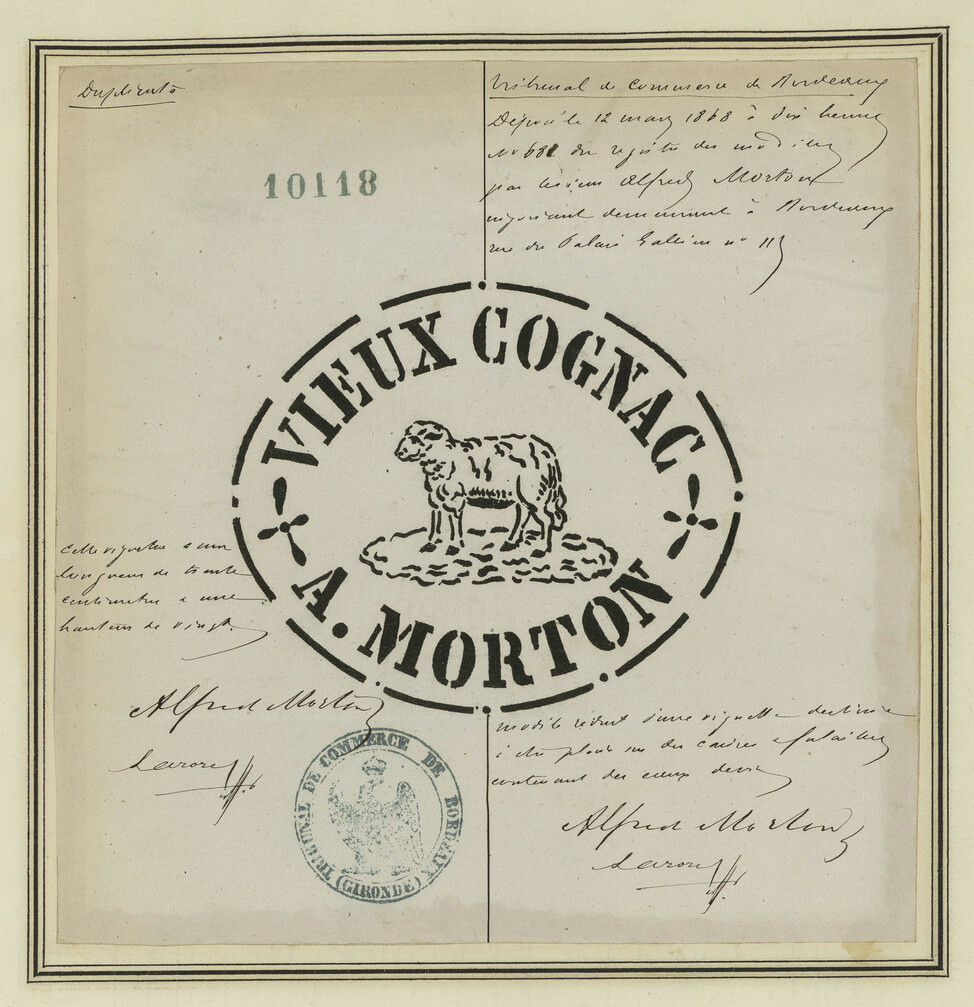 Duplicata
10118
Tribunal de Commerce de Bordeaux
Déposé le 12 mars 1868 à dix heures
No 681 du registre des modèles
par le sieur Alfred Morton
négociant demeurant à Bordeaux
rue du Palais Gallien no 113
VIEUX COGNAC
A. MORTON
Cette vignette a une
longueur de trente
centimètres & une
hauteur de vingt.
Alfred Morton
modèle réduit d'une vignette destinée
à être placée sur des caisses & futailles
contenant des eaux de vie
Alfred Morton
TRIBUNAL DE COMMERCE DE BORDEAUX
(GIRONDE)